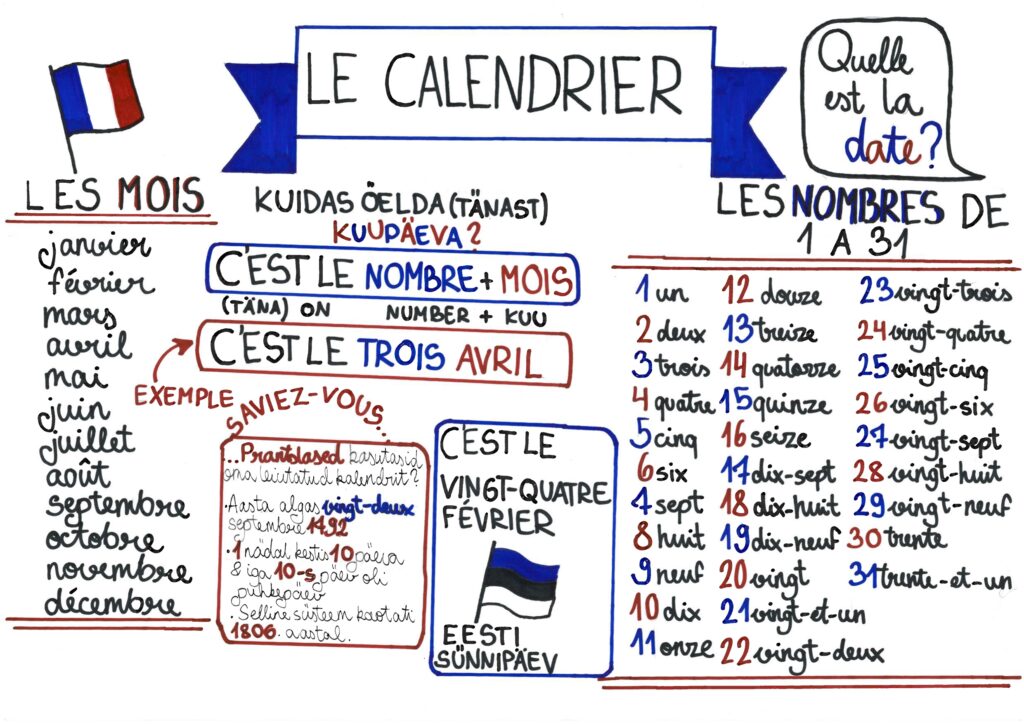 LE CALENDRIER
Quelle
est la
date?
LES MOIS
janvier
février
mars
avril
mai
juin
juillet
août
septembre
octobre
novembre
décembre
KUIDAS ÖELDA (TÄNAST)
KUUPÄEVA?
C'EST LE NOMBRE + MOIS
(TÄNA) ON NUMBER + KUU
C'EST LE TROIS AVRIL
EXEMPLE
SAVIEZ-VOUS...
...Prantslased kasutasid
oma leiutatud kalendrit?
·Aasta algas vingt-deux
septembre 1792
·1 nädal kestis 10 päeva
& iga 10-s päev oli
puhkepäev
·Selline süsteem kaotati
1806. aastal.
C'EST LE
VINGT-QUATRE
FÉVRIER
EESTI
SÜNNIPÄEV
LES NOMBRES DE
1 A 31
1 un
2 deux
3 trois
4 quatre
5 cinq
6 six
7 sept
8 huit
9 neuf
10 dix
11 onze
12 douze
13 treize
14 quatorze
15 quinze
16 seize
17 dix-sept
18 dix-huit
19 dix-neuf
20 vingt
21 vingt-et-un
22 vingt-deux
23 vingt-trois
24 vingt-quatre
25 vingt-cinq
26 vingt-six
27 vingt-sept
28 vingt-huit
29 vingt-neuf
30 trente
31 trente-et-un